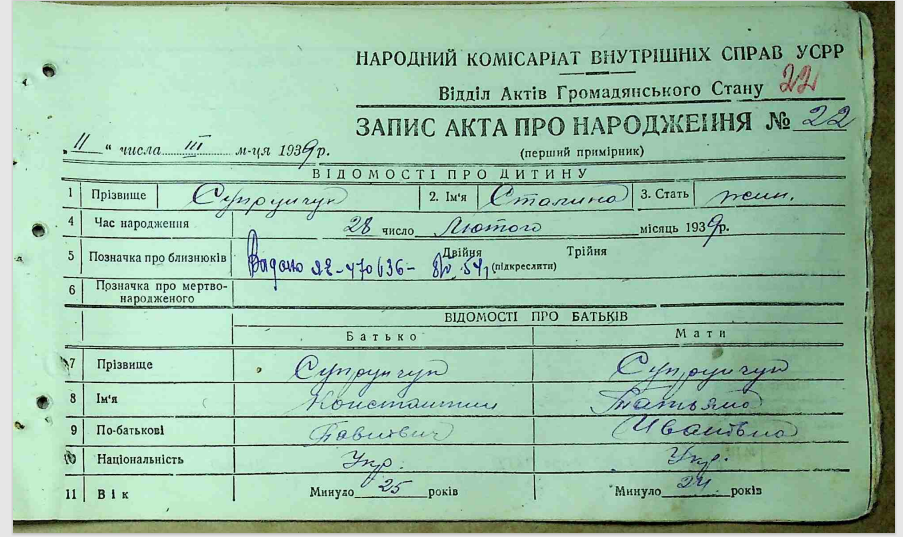 НАРОДНИЙ КОМІСАРІАТ ВНУТРІШНІХ СПРАВ УСРР
Відділ Актів Громадянського Стану 22
ЗАПИС АКТА ПРО НАРОДЖЕННЯ № 22
„11“ числа III м-ця 1939р. (перший примірник)
ВІДОМОСТІ ПРО ДИТИНУ
1 Прізвище Супрунчук 2. Ім'я Сталина 3. Стать жін.
4 Час народження 28 число Лютого місяць 1939р.
5 Позначка про близнюків Двійня Трійня
Видано (підкреслити)
6 Позначка про мертво-
народженого
ВІДОМОСТІ ПРО БАТЬКІВ
Батько Мати
7 Прізвище Супрунчук Супрунчук
8 Ім'я Константин Татьяна
9 По-батькові Івановна
10 Національність Укр. Укр.
11 Вік Минуло 25 років Минуло 24 років